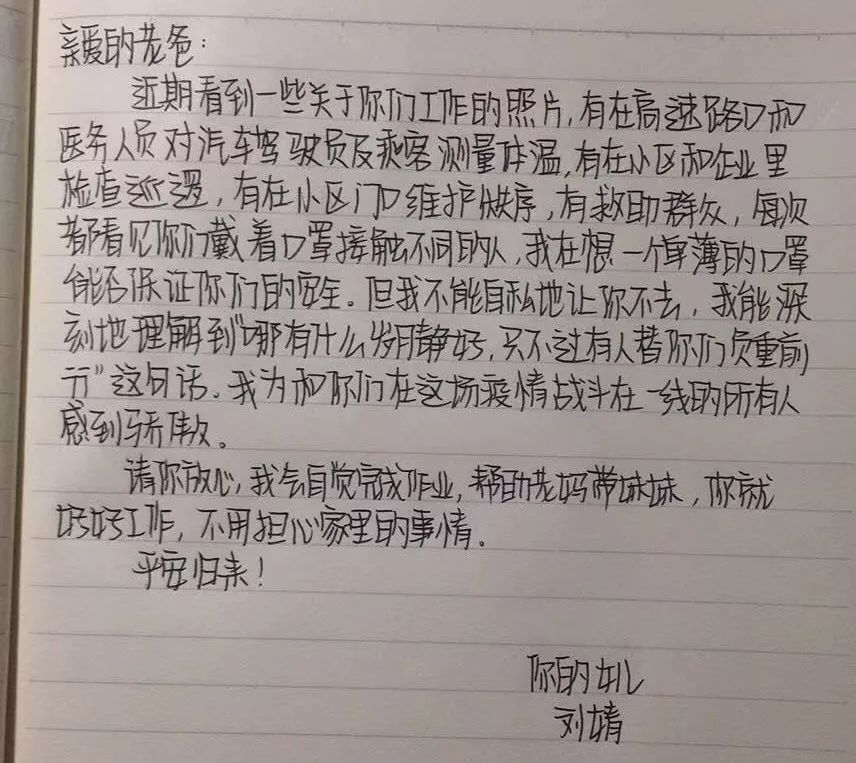 亲爱的老爸：
近期看到一些关于你们工作的照片，有在高速路口和
医务人员对汽车驾驶员及乘客测量体温，有在小区和企业里
检查巡逻，有在小区门口维护秩序，有救助群众，每次
都看见你们戴着口罩接触不同的人，我在想一个单薄的口罩
能否保证你们的安全。但我不能自私地让你不去，我能深
刻地理解到“哪有什么岁月静好，只不过有人替你们负重前
行”这句话。我为和你们在这场疫情战斗在一线的所有人
感到骄傲。
请你放心，我会自觉完成作业，帮助老妈带妹妹，你就
好好工作，不用担心家里的事情。
平安归来！
你的女儿
刘婧